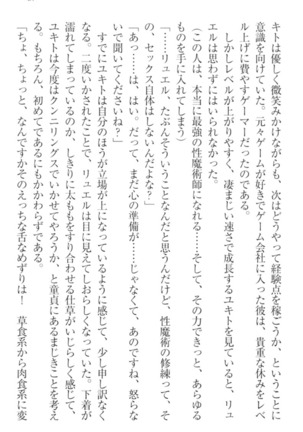 キトは優しく微笑みかけながらも、次はどうやって経験点を稼ごうか、ということに
意識を向けていた。元々ゲームが好きでゲーム会社に入った彼は、貴重な休みをレベ
ル上げに費やすゲーマーだったのである。
しかしレベルが上がりやすく、凄まじい速さで成長するユキトを見ていると、リュ
エルは思わずにはいられなかった。
(この人は、本当に最強の性魔術師になる……そして、その力できっと、あらゆる
ものを手に入れてしまう)
「……リュエル、たぶんそういうことなんだと思うんだけど、性魔術の修練って、そ
の、セックス自体はしないんだよな?」
「あっ……は、はい。だって、まだ心の準備が……じゃなくて、あのですね、怒らな
いで聞いてくださいね?」
すでにユキトは自分のほうが立場が上になっているように感じて、少し申し訳なく
なる。二度いかされたことで、リュエルは目に見えておしらしくなっていた。下着が
濡れてしまっているのか、しきりに太ももをすり合わせる仕草がいじらしく感じて、
ユキトは今度はクンニリングスでいかせてやろうか、と童貞にあるまじきことを考え
る。もちろん、初めてであるにもかかわらずである。
「ちょ、ちょっと、なんですかそのえっちな舌なめずりは! 草食系から肉食系に変